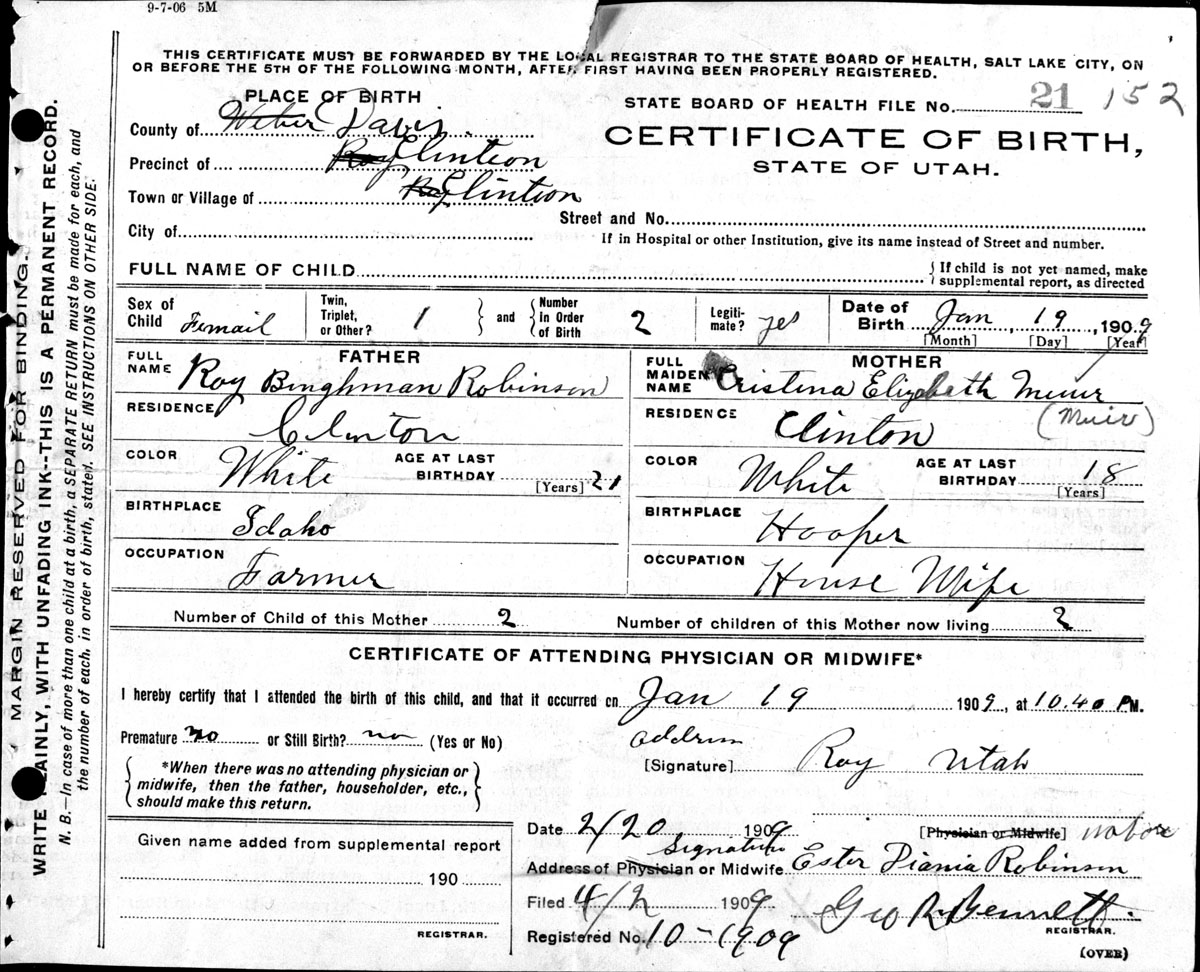 9-7-06 5M
THIS CERTIFICATE MUST BE FORWARDED BY THE LOCAL REGISTRAR TO THE STATE BOARD OF HEALTH, SALT LAKE CITY, ON
OR BEFORE THE 5TH OF THE FOLLOWING MONTH, AFTER FIRST HAVING BEEN PROPERLY REGISTERED.
PLACE OF BIRTH
STATE BOARD OF HEALTH FILE No. 21 152
County of Weber Davis.
CERTIFICATE OF BIRTH,
STATE OF UTAH.
Precinct of Roy Clinteon
Town or Village of Roy Clintion
Street and No.
City of
If in Hospital or other Institution, give its name instead of Street and number.
FULL NAME OF CHILD
{ If child is not yet named, make
supplemental report, as directed
Sex of Child Femail
Twin, Triplet, or Other? 1
} and { Number In Order of Birth 2
Legiti-mate? yes
Date of Birth Jan, 19, 1909
[Month] [Day] [Year]
FATHER
FULL NAME Roy Binghman Robinson
MOTHER
FULL MAIDEN NAME Cristena Elizabath Meuir
(Muir)
RESIDENCE Clinton
RESIDENCE Clinton
COLOR White AGE AT LAST BIRTHDAY 21 [Years]
COLOR White AGE AT LAST BIRTHDAY 18 [Years]
BIRTHPLACE Idaho
BIRTHPLACE Hooper
OCCUPATION Farmer
OCCUPATION House Wife
Number of Child of this Mother 2 Number of children of this Mother now living 2
CERTIFICATE OF ATTENDING PHYSICIAN OR MIDWIFE*
I hereby certify that I attended the birth of this child, and that it occurred on Jan 19 1909, at 10.40 PM.
Premature no or Still Birth? no (Yes or No)
address
[Signature] Roy Utah
{ *When there was no attending physician or
midwife, then the father, householder, etc.,
should make this return. }
Date 2/20 1909 [Physician or Midwife]
Signature
Address of Physician or Midwife Ester Diania Robinson
Filed 4/2 1909 Geo R Bennett.
REGISTRAR.
Registered No. 10-1909
(OVER)
Given name added from supplemental report
190
REGISTRAR.
MARGIN RESERVED FOR BINDING.
WRITE PLAINLY, WITH UNFADING INK--THIS IS A PERMANENT RECORD.
N. B.—In case of more than one child at a birth, a SEPARATE RETURN must be made for each, and
the number of each, in order of birth, stated. SEE INSTRUCTIONS ON OTHER SIDE.